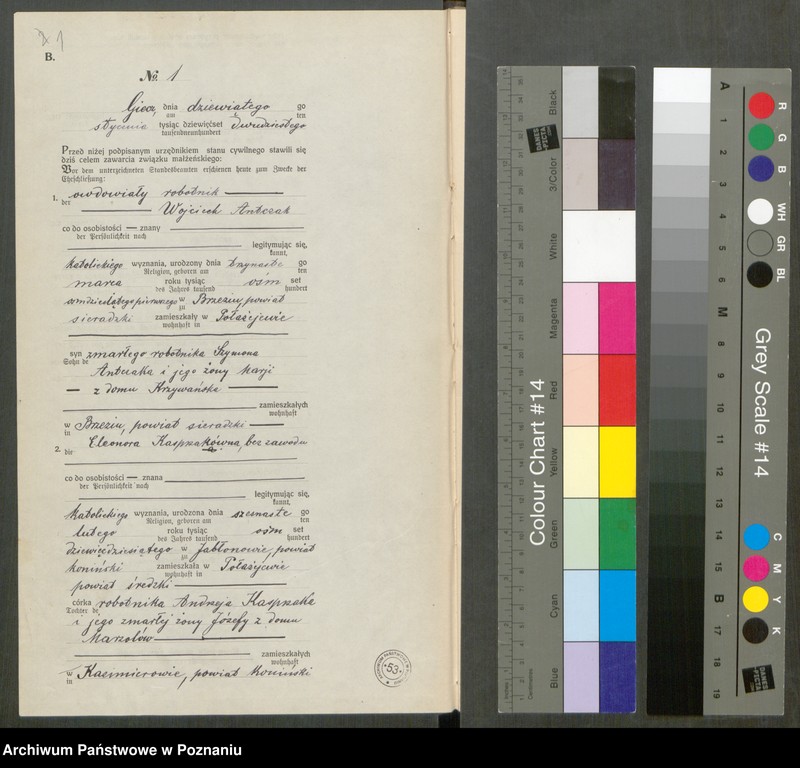 1
B.
No. 1
Giecz, dnia dziewiątego go
am ten
stycznia tysiąc dziewięćset dwudziestego
tausendneunhundert
Przed niżej podpisanym urzędnikiem stanu cywilnego stawili się
dziś celem zawarcia związku małżeńskiego:
Vor dem unterzeichneten Standesbeamten erschienen heute zum Zwecke der
Eheschließung:
1. owdowiały robotnik
der
Wojciech Antczak
co do osobistości — znany
der Persönlichkeit nach
legitymując się,
kannt,
katolickiego wyznania, urodzony dnia trzynaste go
Religion, geboren am ten
marca roku tysiąc ośm set
des Jahres tausend hundert
osmdziesiątego pierwszego w Brzeziu, powiat
zu
sieradzki zamieszkały w Połażejewie
wohnhaft in
syn zmarłego robotnika Szymona
Sohn de
Antczaka i jego żony Marji
— z domu Krzywańska
zamieszkałych
wohnhaft
w Brzeziu, powiat sieradzki
in
2. Eleonora Kasprzakówna, bez zawodu
die
co do osobistości — znana
der Persönlichkeit nach
legitymując się,
kannt,
katolickiego wyznania, urodzona dnia szesnaste go
Religion, geboren am ten
lutego roku tysiąc ośm set
des Jahres tausend hundert
dziewięćdziesiątego w Jabłonowie, powiat
zu
koniński zamieszkała w Połażejewie
wohnhaft in
powiat średzki
córka robotnika Andrzeja Kasprzaka
Tochter de
i jego zmarłej żony Józefy z domu
Marzołów
zamieszkałych
wohnhaft
w Kazimierowie, powiat koniński
in
53.
Archiwum Państwowe w Poznaniu
Colour Chart #14
Black
3/Color
White
Magenta
Red
Yellow
Green
Cyan
Blue
Inches
Centimetres
DANES-PICTA
Grey Scale #14
A
1
2
3
4
5
6
M
8
9
10
11
12
13
14
15
B
17
18
19
R
G
B
WH
GR
BL
C
M
Y
K
DANES-PICTA